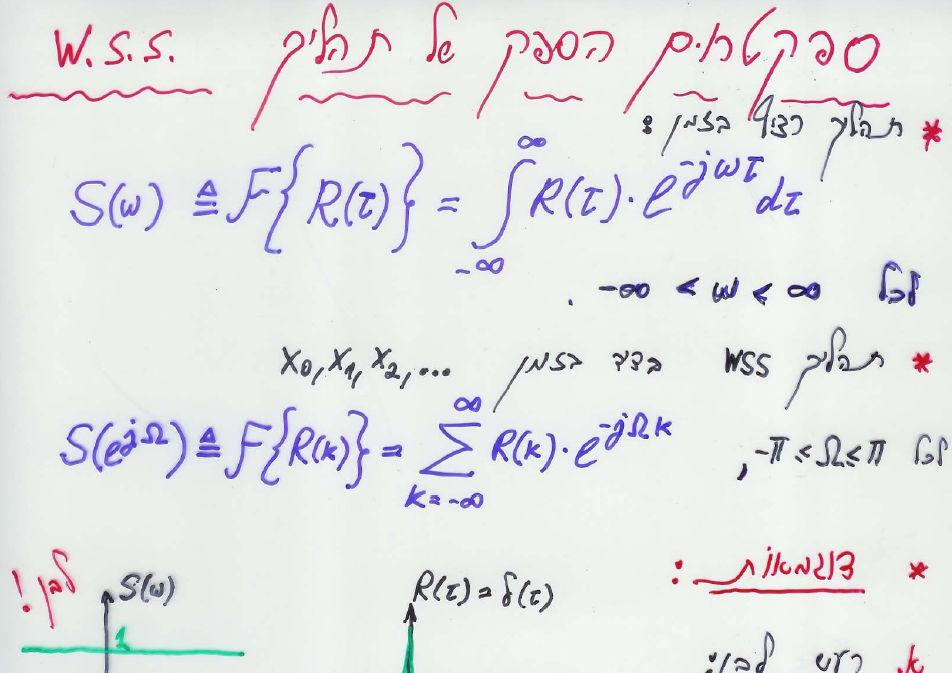 ספקטראום הספק של תהליך W.S.S.
* תהליך רציף בזמן:
S(ω) ≜ F{R(τ)} = ∫_{-∞}^{∞} R(τ)·e^{-jωτ} dτ
לכל -∞ < ω < ∞ .
* תהליך WSS בדיד בזמן X₀, X₁, X₂, ...
S(e^{jΩ}) ≜ F{R(k)} = ∑_{k=-∞}^{∞} R(k)·e^{-jΩk}
לכל -π ≤ Ω ≤ π ,
* דוגמאות:
R(τ) = δ(τ)
S(ω)
לבן!
1
א. רעש לבן: